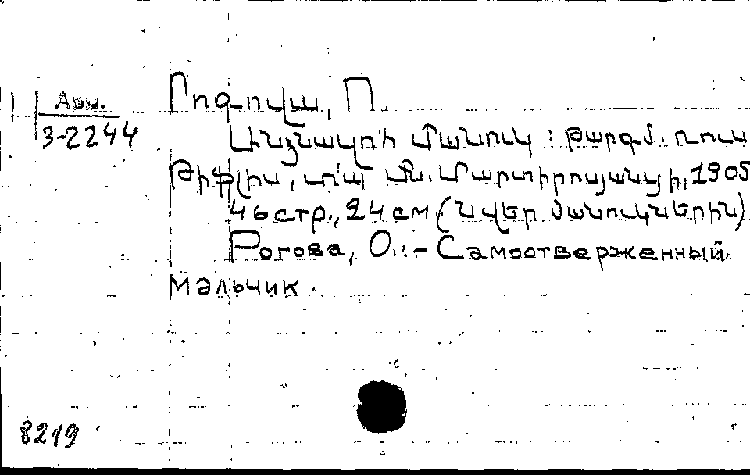 Арм.
3-2244
Րոգովա, Օ.
Անձնազոհ մանուկ : թարգմ. ռուս
Թիֆլիս, տպ. Մ. Մարտիրոսյանցի, 1905
46 стр., 24 см. (Նվեր մանուկներին)
Рогова, О. :- Самоотверженный
мальчик.
8219